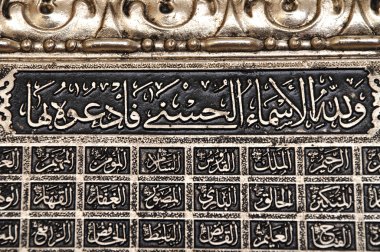 ولله الأسماء الحسنى فادعوه بها
الرحيم الملك القدوس السلام المؤمن المهيمن
المتكبر الخالق البارئ المصور الغفار القهار
الفتاح العليم القابض الباسط الخافض الرافع